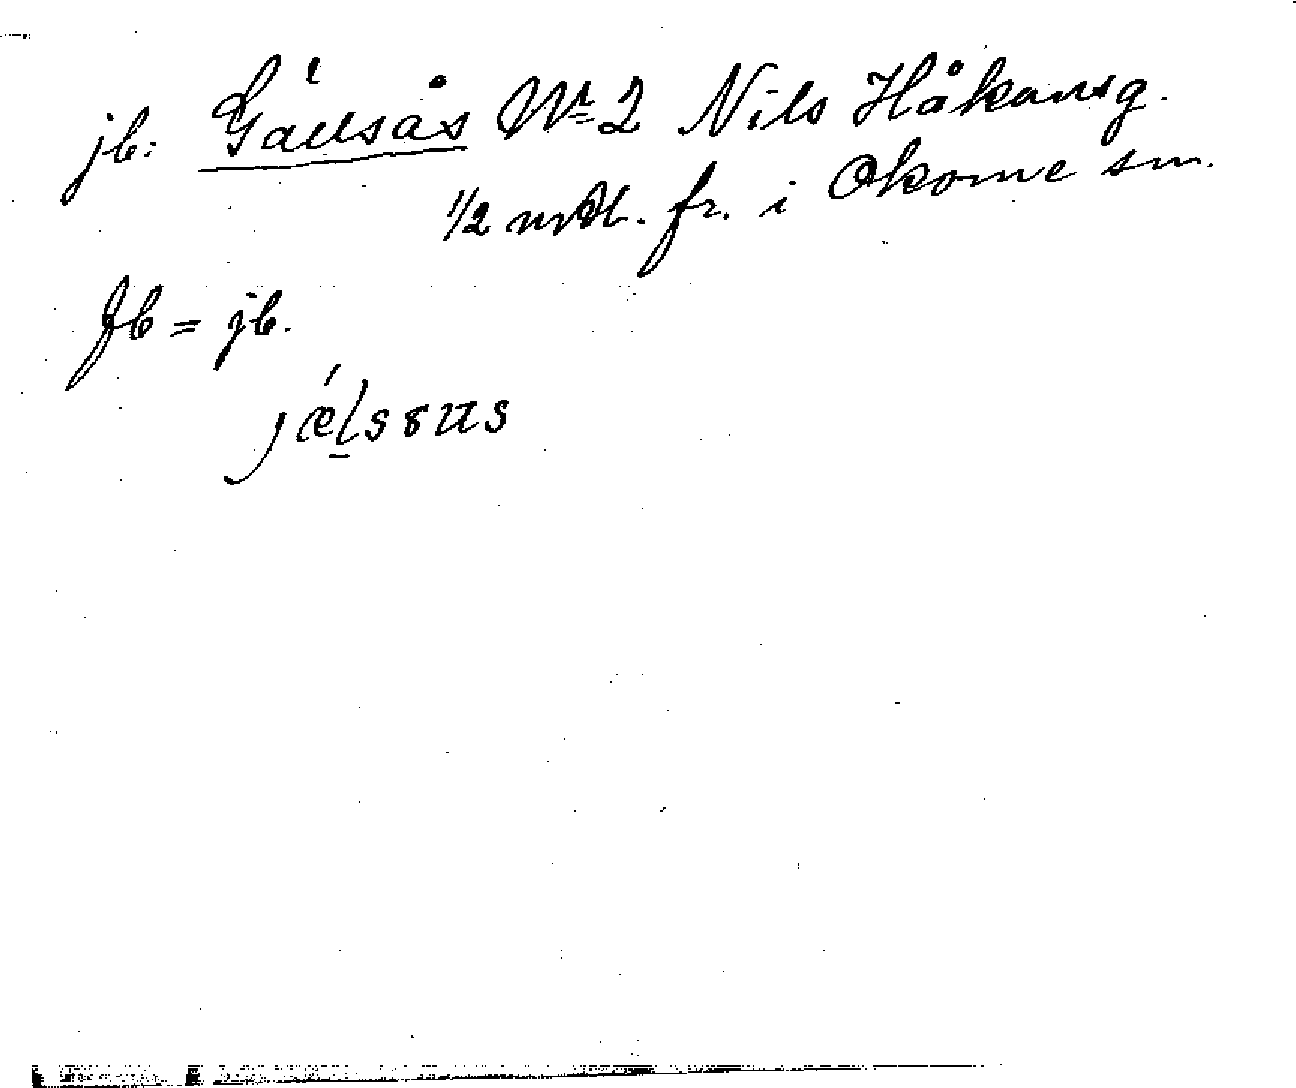 jb: Gällsås Nr 2 Nils Håkansg.
1/2 mtl. fr. i Okome sn.
Jb = jb.